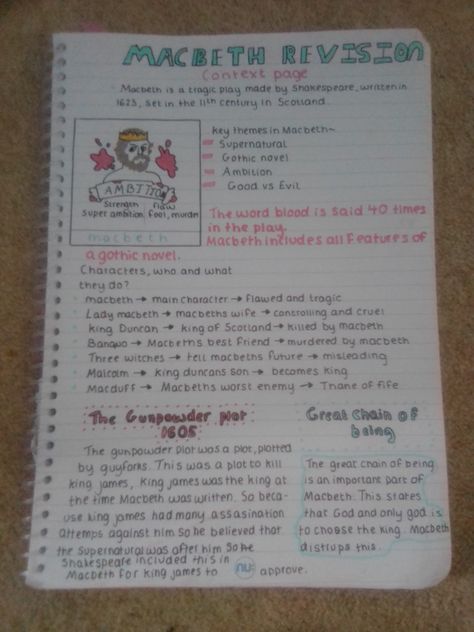 MACBETH REVISION
Context page
Macbeth is a tragic play made by Shakespeare, written in
1623, set in the 11th century in Scotland.
AMBITION
Strength flaw
Super ambition fool, murdrn
macbeth
Key themes in Macbeth~
Supernatural
Gothic novel
Ambition
Good vs Evil
The word blood is said 40 times
in the play.
Macbeth includes all features of
a gothic novel.
Characters, who and what
they do?
macbeth → main character → flawed and tragic
Lady macbeth → macbeths wife → controlling and cruel
king Duncan → king of Scotland → killed by macbeth
Banquo → Macbeths best friend → murdered by macbeth
Three witches → tell macbeths future → misleading
Malcolm → king duncans son → becomes king
Macduff → Macbeths worst enemy → Thane of fife
The Gunpowder plot
1605
The gunpowder plot was a plot, plotted
by guyforks. This was a plot to kill
king james, king james was the king at
the time Macbeth was written. So beca-
use king james had many assasination
attemps against him so he believed that
the supernatural was after him so he
Shakespeare included this in
Macbeth for king james to approve.
nu:
Great Chain of
being
The great chain of being
is an important part of
Macbeth. This states
that God and only god is
to choose the king. Macbeth
distrups this.